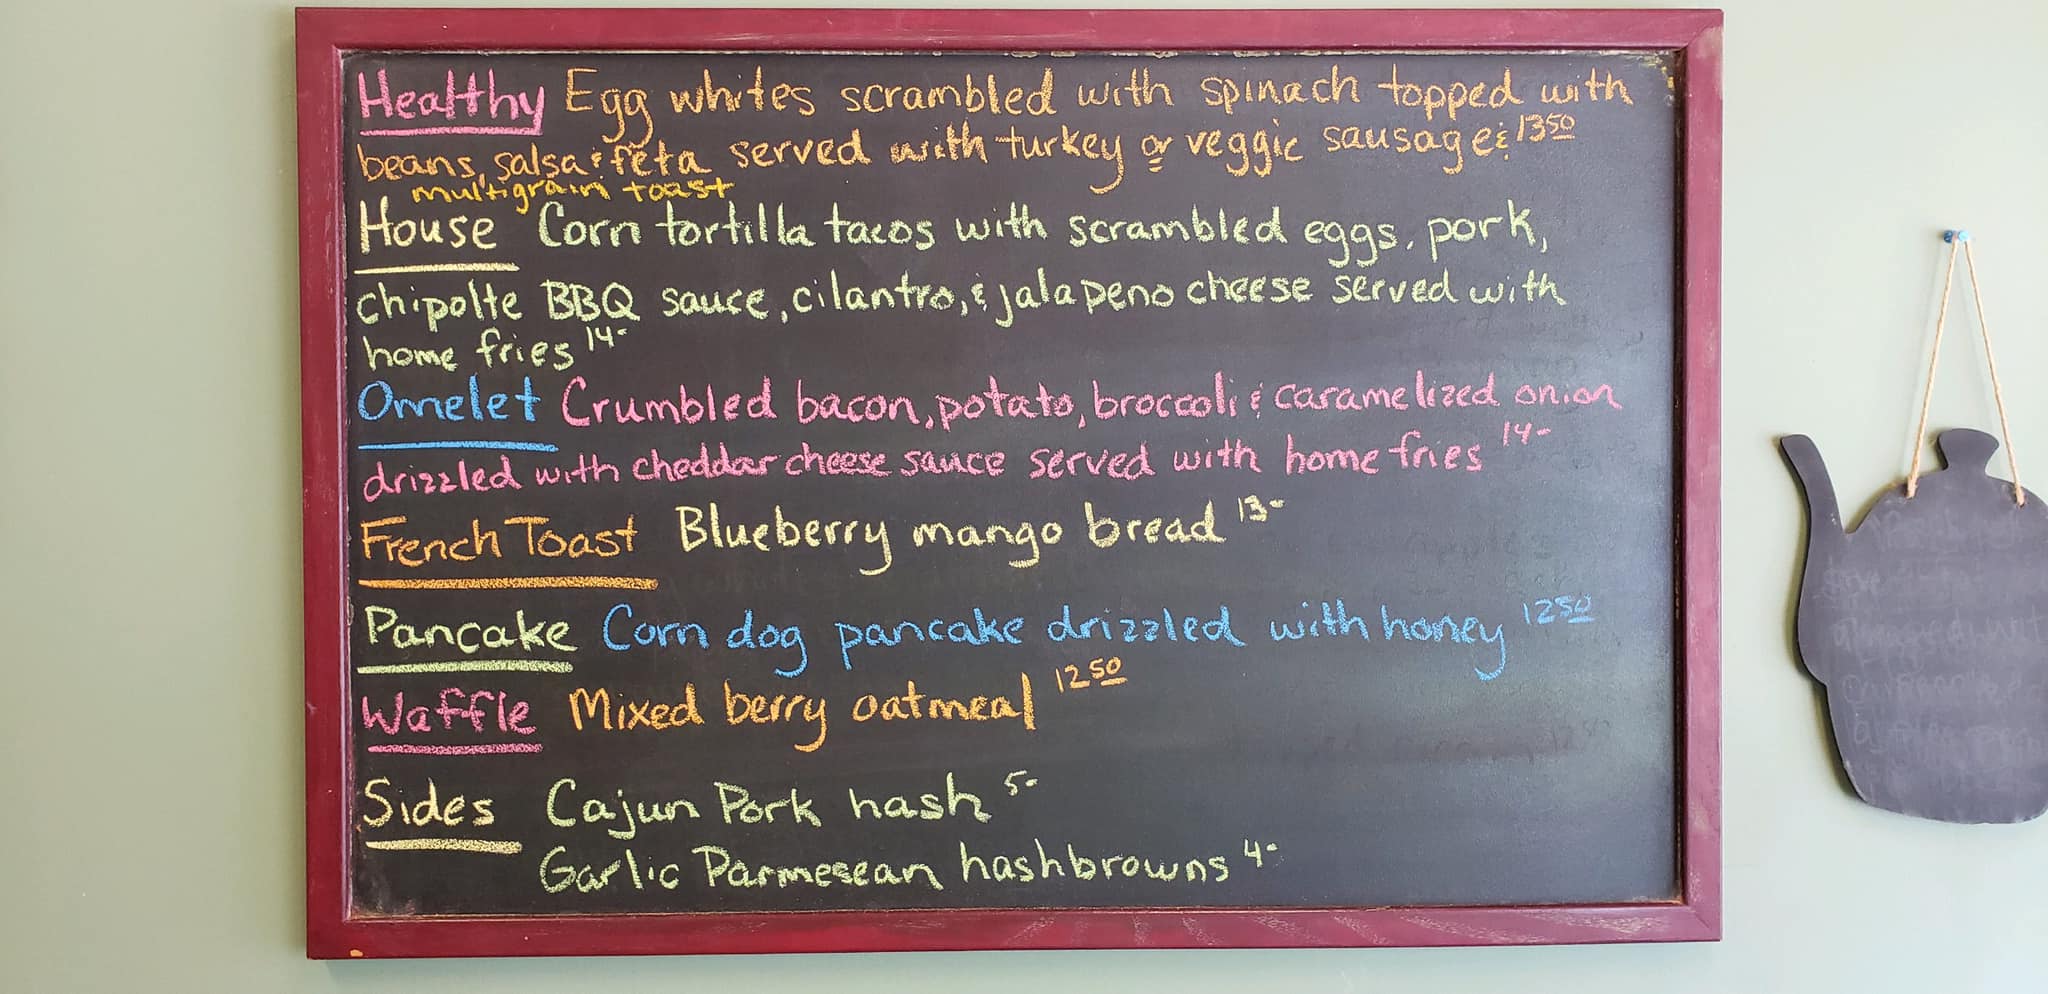 Healthy Egg whites scrambled with spinach topped with
beans, salsa & feta served with turkey or veggie sausage & 1350
multigrain toast
House Corn tortilla tacos with scrambled eggs, pork,
chipolte BBQ sauce, cilantro, & jalapeno cheese served with
home fries 14-
Omelet Crumbled bacon, potato, broccoli & caramelized onion
drizzled with cheddar cheese sauce served with home fries 14-
French Toast Blueberry mango bread 13-
Pancake Corn dog pancake drizzled with honey 1250
Waffle Mixed berry oatmeal 1250
Sides Cajun Pork hash 5-
Garlic Parmesean hashbrowns 4-